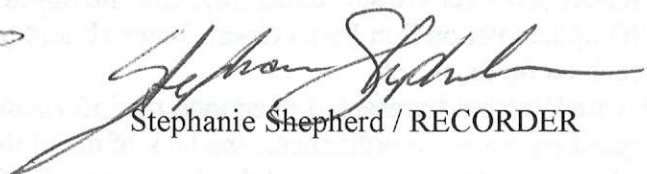 Stephanie Shepherd
Stephanie Shepherd / RECORDER